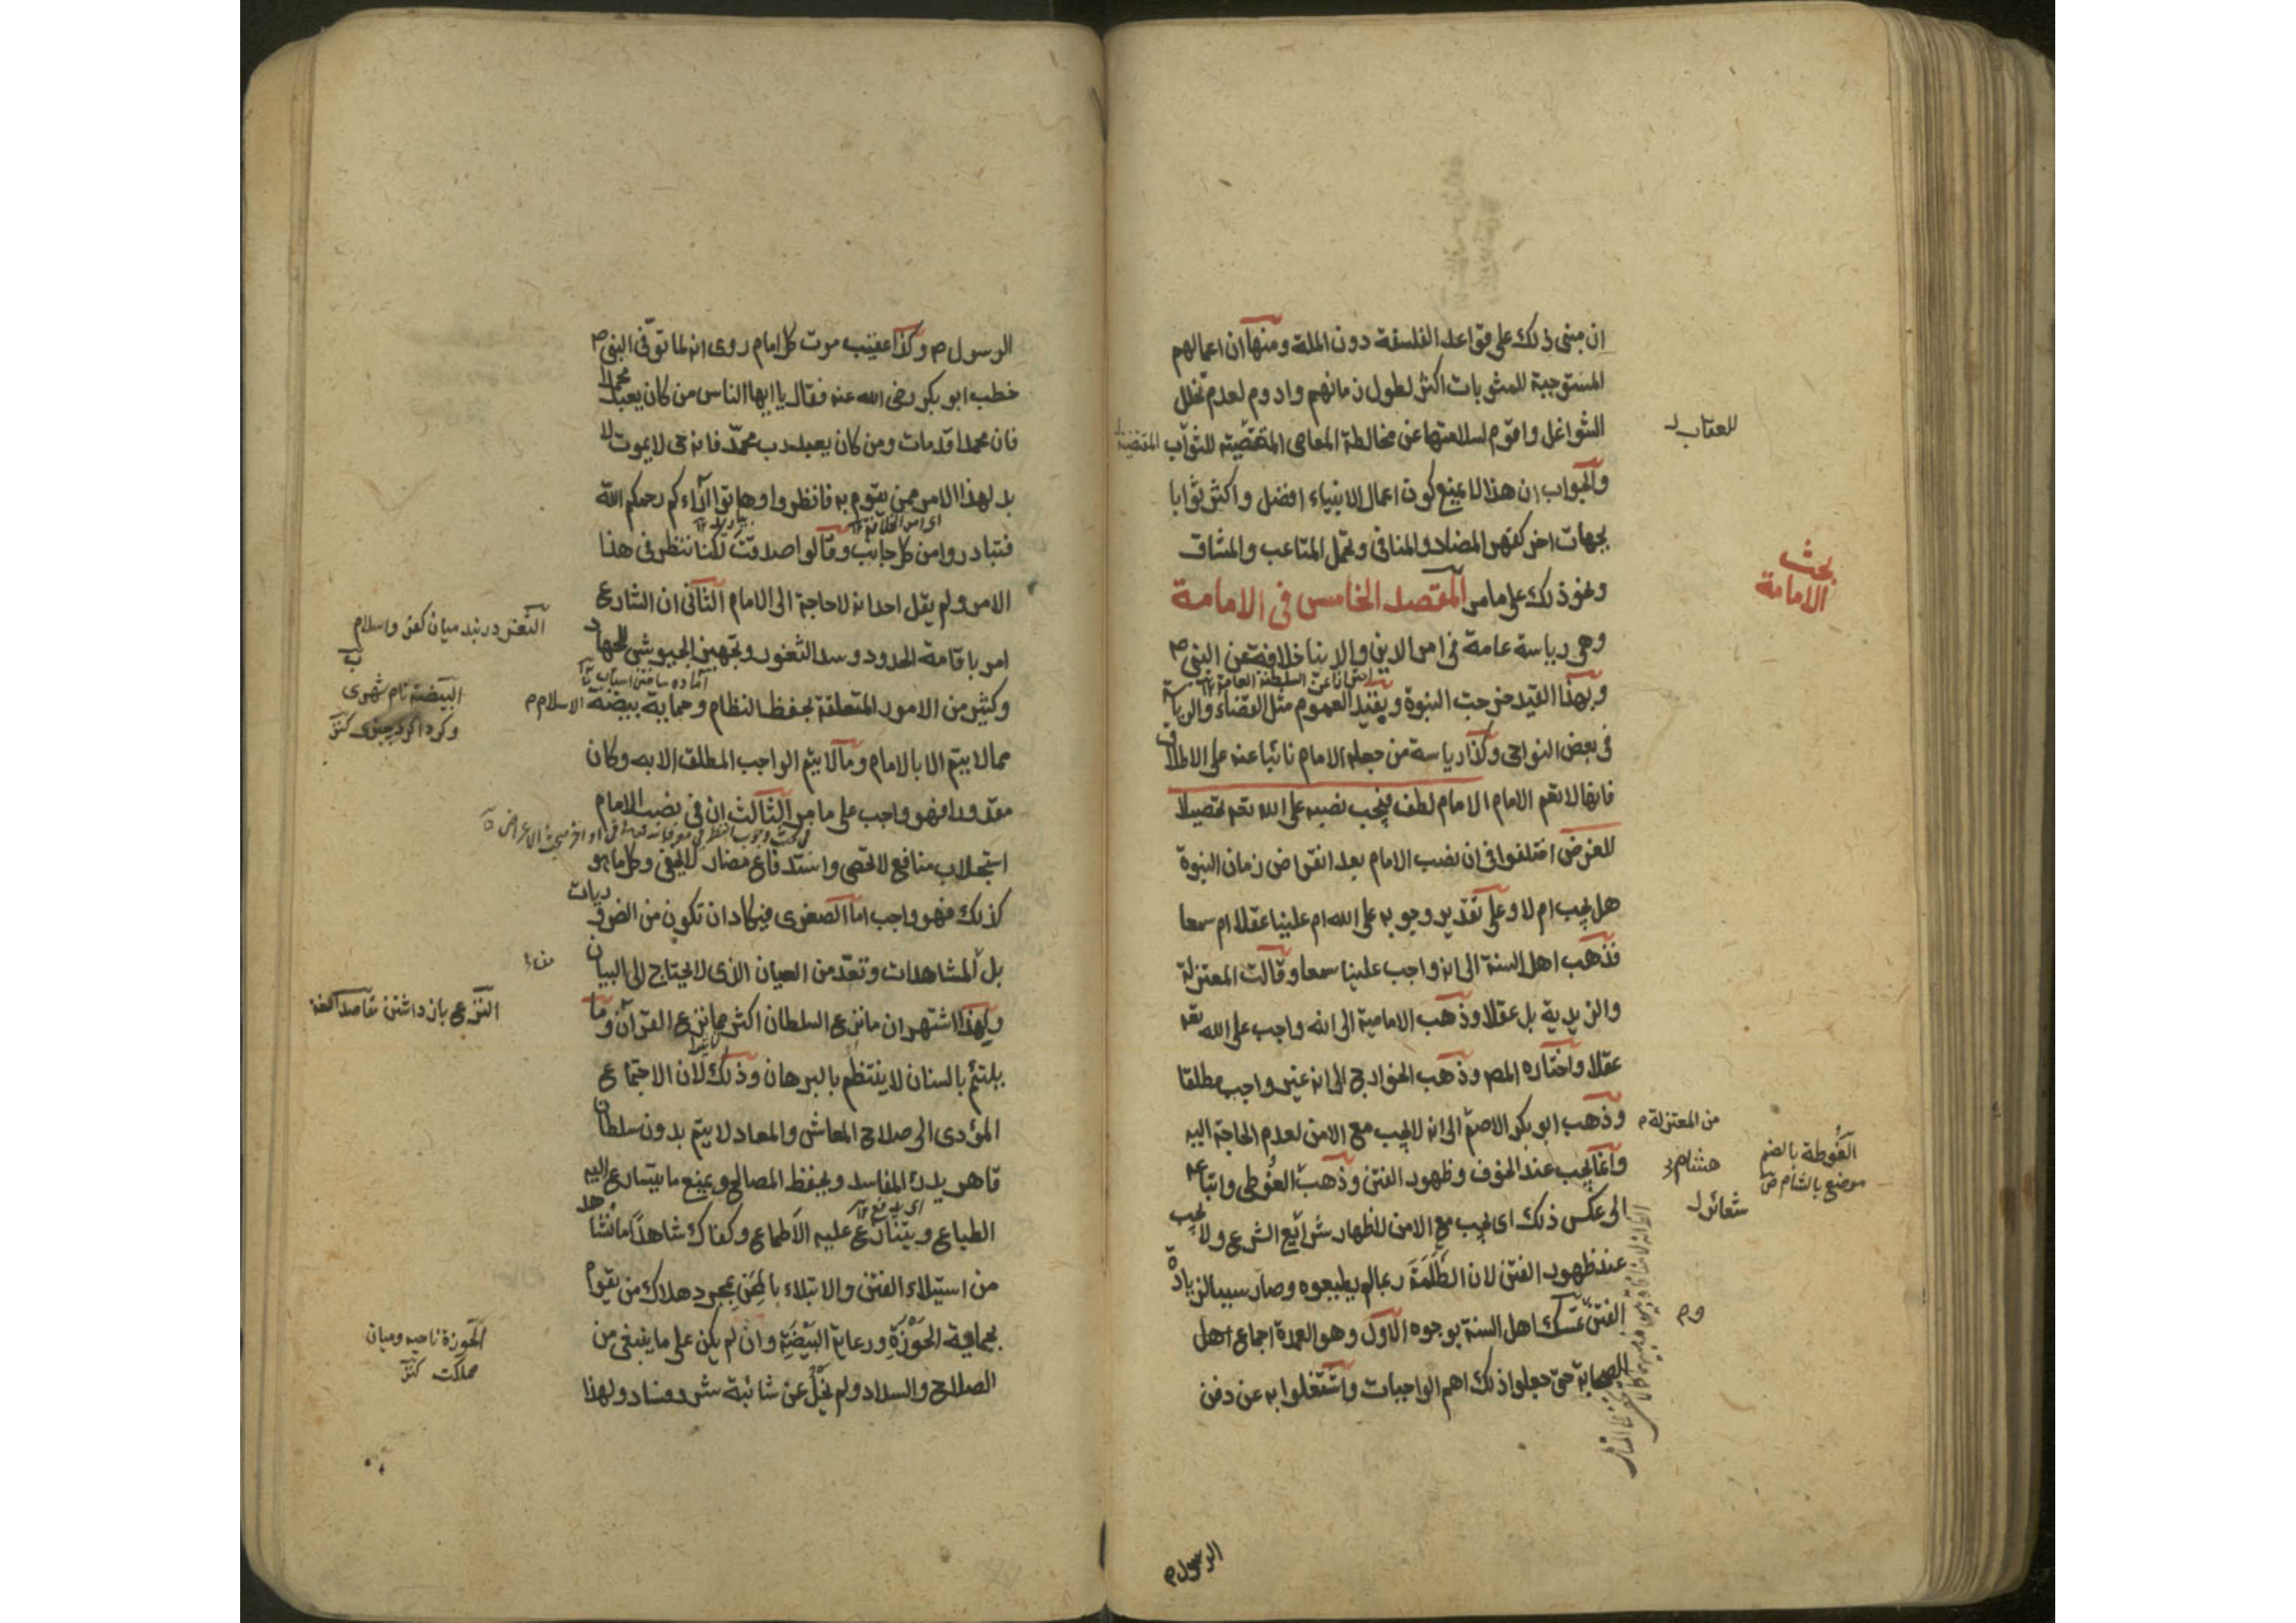 ان مبنى ذلك على قواعد الفلسفة دون الملة ومنها ان اعمالهم
المستوجبة للمثوبات اكثر لطول زمانهم وادوم لعدم تخلل
الشواغل واقوم لسلامتها عن مخالطة المعاصى المقتضية للثواب
للعقاب
والجواب ان هذا لا يمنع كون اعمال الانبياء افضل واكثر ثوابا
بجهات اخر كقهر المضاد والمنافى وتحمل المتاعب والمشاق
ونحو ذلك على ما مر المقصد الخامس فى الامامة
بحث
الامامة
وهى رياسة عامة فى امر الدين والدنيا خلافة عن النبى ص
وبهذا القيد خرجت النبوة وبقيد العموم مثل القضاء والرياسة
فى بعض النواحى وكذا رياسة من جعله الامام نائبا عنه على الاطلاق
فانها لا تعم الامام الامام لطف فيجب نصبه على الله تعم تحصيلا
للغرض اختلفوا فى ان نصب الامام بعد انقراض زمان النبوة
هل يجب ام لا وعلى تقدير وجوبه على الله ام علينا عقلا ام سمعا
فذهب اهل السنة الى انه واجب علينا سمعا وقالت المعتزلة
والزيدية بل عقلا وذهب الامامية الى انه واجب على الله تعه
عقلا واختاره المص وذهب الخوارج الى انه غير واجب مطلقا
وذهب ابو بكر الاصم الى انه لا يجب مع الامن لعدم الحاجة اليه
من المعتزلة م
وانما يجب عند الخوف وظهور الفتن وذهب الغوطى واتباعه
هشام
الغوطة بالضم
موضع بالشام ض
الى عكس ذلك اى يجب مع الامن لاظهار شرائع الشرع ولا يجب
شعائر
عند ظهور الفتن لان الظلمة ربما لم يطيعوه وصار سببا لزيادة
الفتن تمسك اهل السنة بوجوه الاول وهو العمدة اجماع اهل
الصحابة حتى جعلوا ذلك اهم الواجبات واشتغلوا به عن دفن
الرسول م
الرسول ص وكذا عقيب موت كل امام روى انه لما توفى النبى ص
خطب ابو بكر رضى الله عنه فقال يا ايها الناس من كان يعبد محمدا
فان محمدا قد مات ومن كان يعبد رب محمد فانه حى لا يموت لا
بد لهذا الامر ممن يقوم به فانظروا وهاتوا آراءكم رحمكم الله
اى امر الخلافة ١٢
فتبادروا من كل جانب وقالوا صدقت لكنا ننظر فى هذا
الامر ولم يقل احد انه لا حاجة الى الامام الثانى ان الشارع
الثغر در بند ميان كفر واسلام
امر باقامة الحدود وسد الثغور وتجهيز الجيوش للجهاد
آماده ساختن اسباب
وكثير من الامور المتعلقة بحفظ النظام وحماية بيضة الاسلام م
البيضة نام شهرى
مما لا يتم الا بالامام وما لا يتم الواجب المطلق الا به وكان
مقدورا فهو واجب على ما مر الثالث ان فى نصب الامام
استجلاب منافع لا تحصى واستدفاع مضار لا يخفى وكل ما هو
كذلك فهو واجب اما الصغرى فيكاد ان تكون من الضروريات
بل المشاهدات وتعد من العيان الذى لا يحتاج الى البيان
ولهذا اشتهر ان ما نزع السلطان اكثر مما نزع القرآن وما
النزع باز داشتن
يلتئم بالسنان لا ينتظم بالبرهان وذلك لان الاجتماع
المؤدى الى صلاح المعاش والمعاد لا يتم بدون سلطان
قاهر يدرك المفاسد ويحفظ المصالح ويمنع ما يتسارع اليه
الطباع ويتنازع عليه الاطماع وكفاك شاهدا ما نشاهد
من استيلاء الفتن والابتلاء بالمحن بمجرد هلاك من يقوم
بحماية الحوزة ورعاية البيضة وان لم يكن على ما ينبغى من
الحوزة ناحيه وميان
مملكت كنز
الصلاح والسداد ولم يخل عن شائبة شر وفساد ولهذا